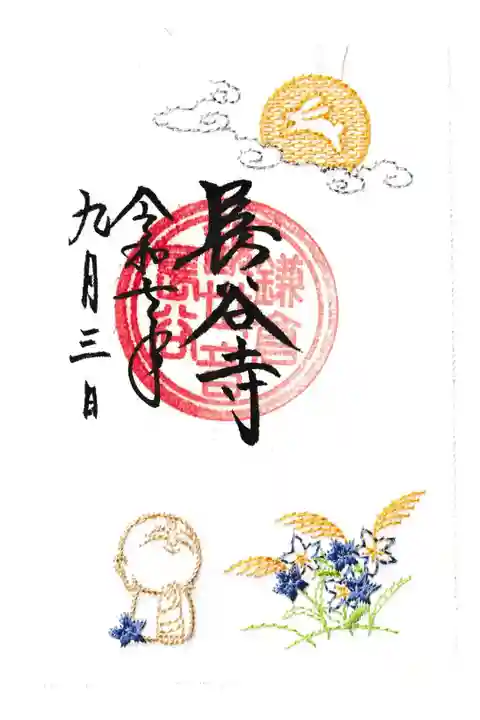 長谷寺
令和七年
九月三日
鎌倉
長谷